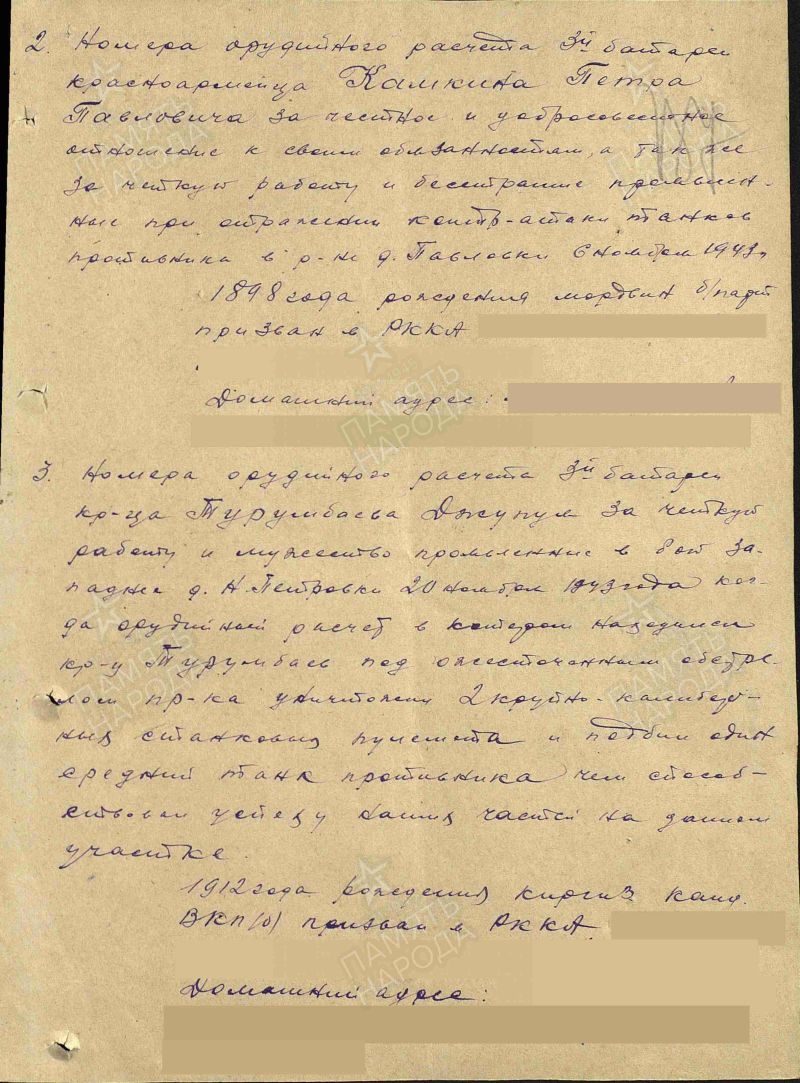 2. Номера орудийного расчета 3й батареи
красноармейца Камкина Петра
Павловича за честное и добросовестное
отношение к своим обязанностям, а так же
за четкую работу и бесстрашие проявлен-
ные при отражении контр-атаки танков
противника в р-не д. Павловки 6 ноября 1943 г.
1898 года рождения мордвин б/парт
призван в РККА
Домашний адрес:
3. Номера орудийного расчета 3й батареи
кр-ца Турумбаева Джупул за четкую
работу и мужество проявленные в бою за-
паднее д. Н. Петровки 20 ноября 1943 года ког-
да орудийный расчет в котором находился
кр-ц Турумбаев под ожесточенным обстре-
лом пр-ка уничтожил 2 крупно-калибер-
ных станковых пулемета и подбил один
средний танк противника чем способ-
ствовал успеху наших частей на данном
участке.
1912 года рождения киргиз канд.
ВКП(б) призван в РККА
Домашний адрес:
ПАМЯТЬ
НАРОДА